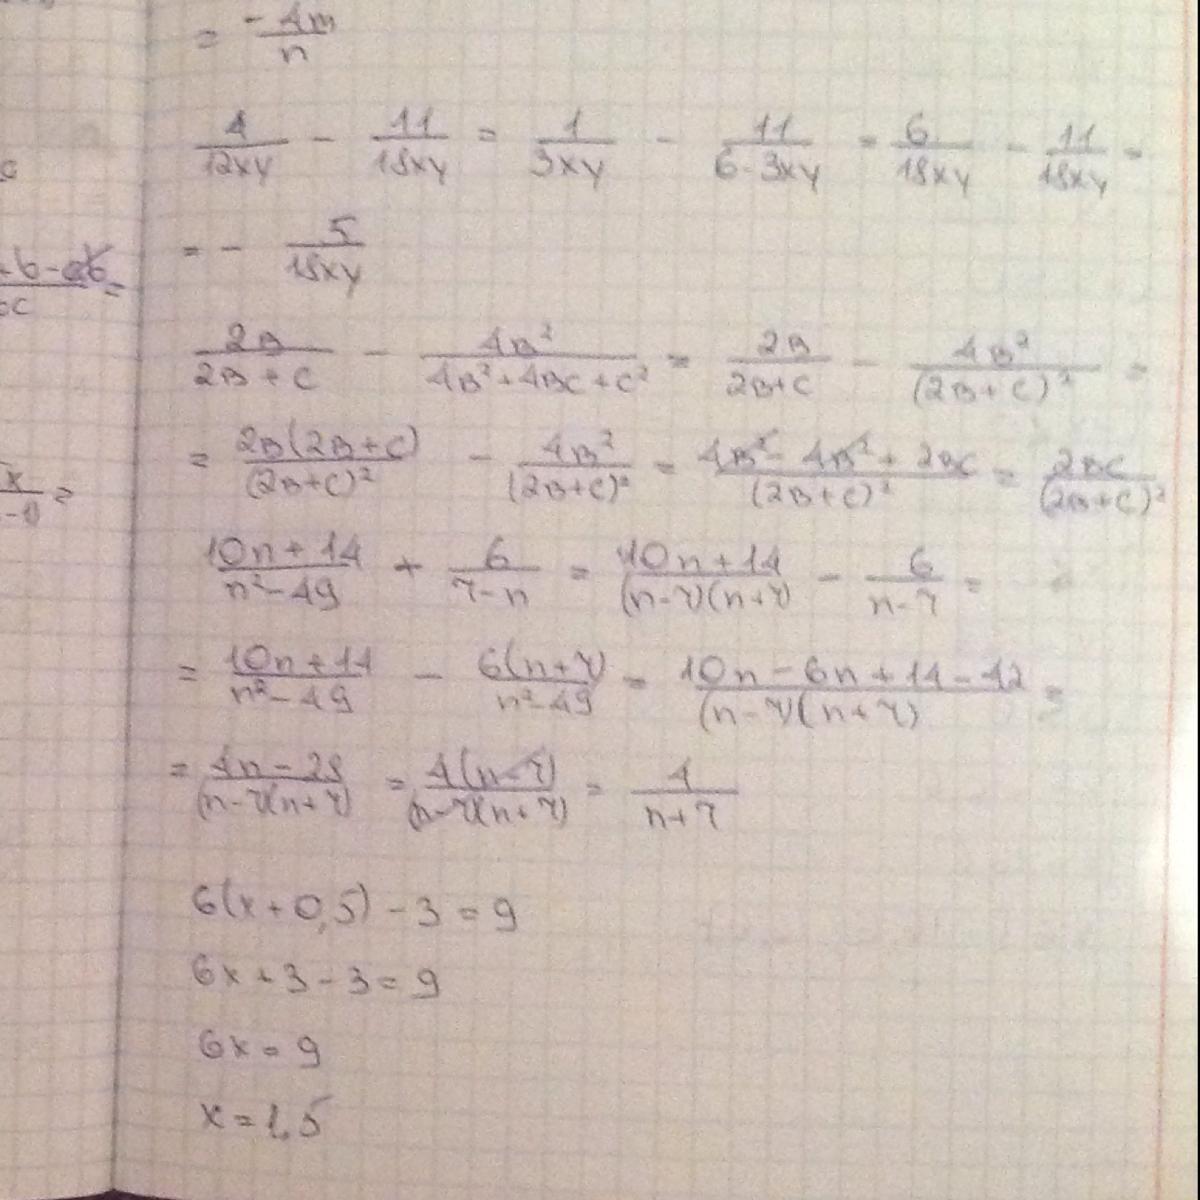 = -4m/n
4/12xy - 11/18xy = 1/3xy - 11/6·3xy = 6/18xy - 11/18xy =
= - 5/18xy
2B/2B+C - 4B²/4B²+4BC+C² = 2B/2B+C - 4B²/(2B+C)² =
= 2B(2B+C)/(2B+C)² - 4B²/(2B+C)² = 4B²-4B²+2BC/(2B+C)² = 2BC/(2B+C)²
10n+14/n²-49 + 6/7-n = 10n+14/(n-7)(n+7) - 6/n-7 =
= 10n+14/n²-49 - 6(n+7)/n²-49 = 10n-6n+14-42/(n-7)(n+7) =
= 4n-28/(n-7)(n+7) = 4(n-7)/(n-7)(n+7) = 4/n+7
6(x+0,5)-3=9
6x+3-3=9
6x=9
x=1,5